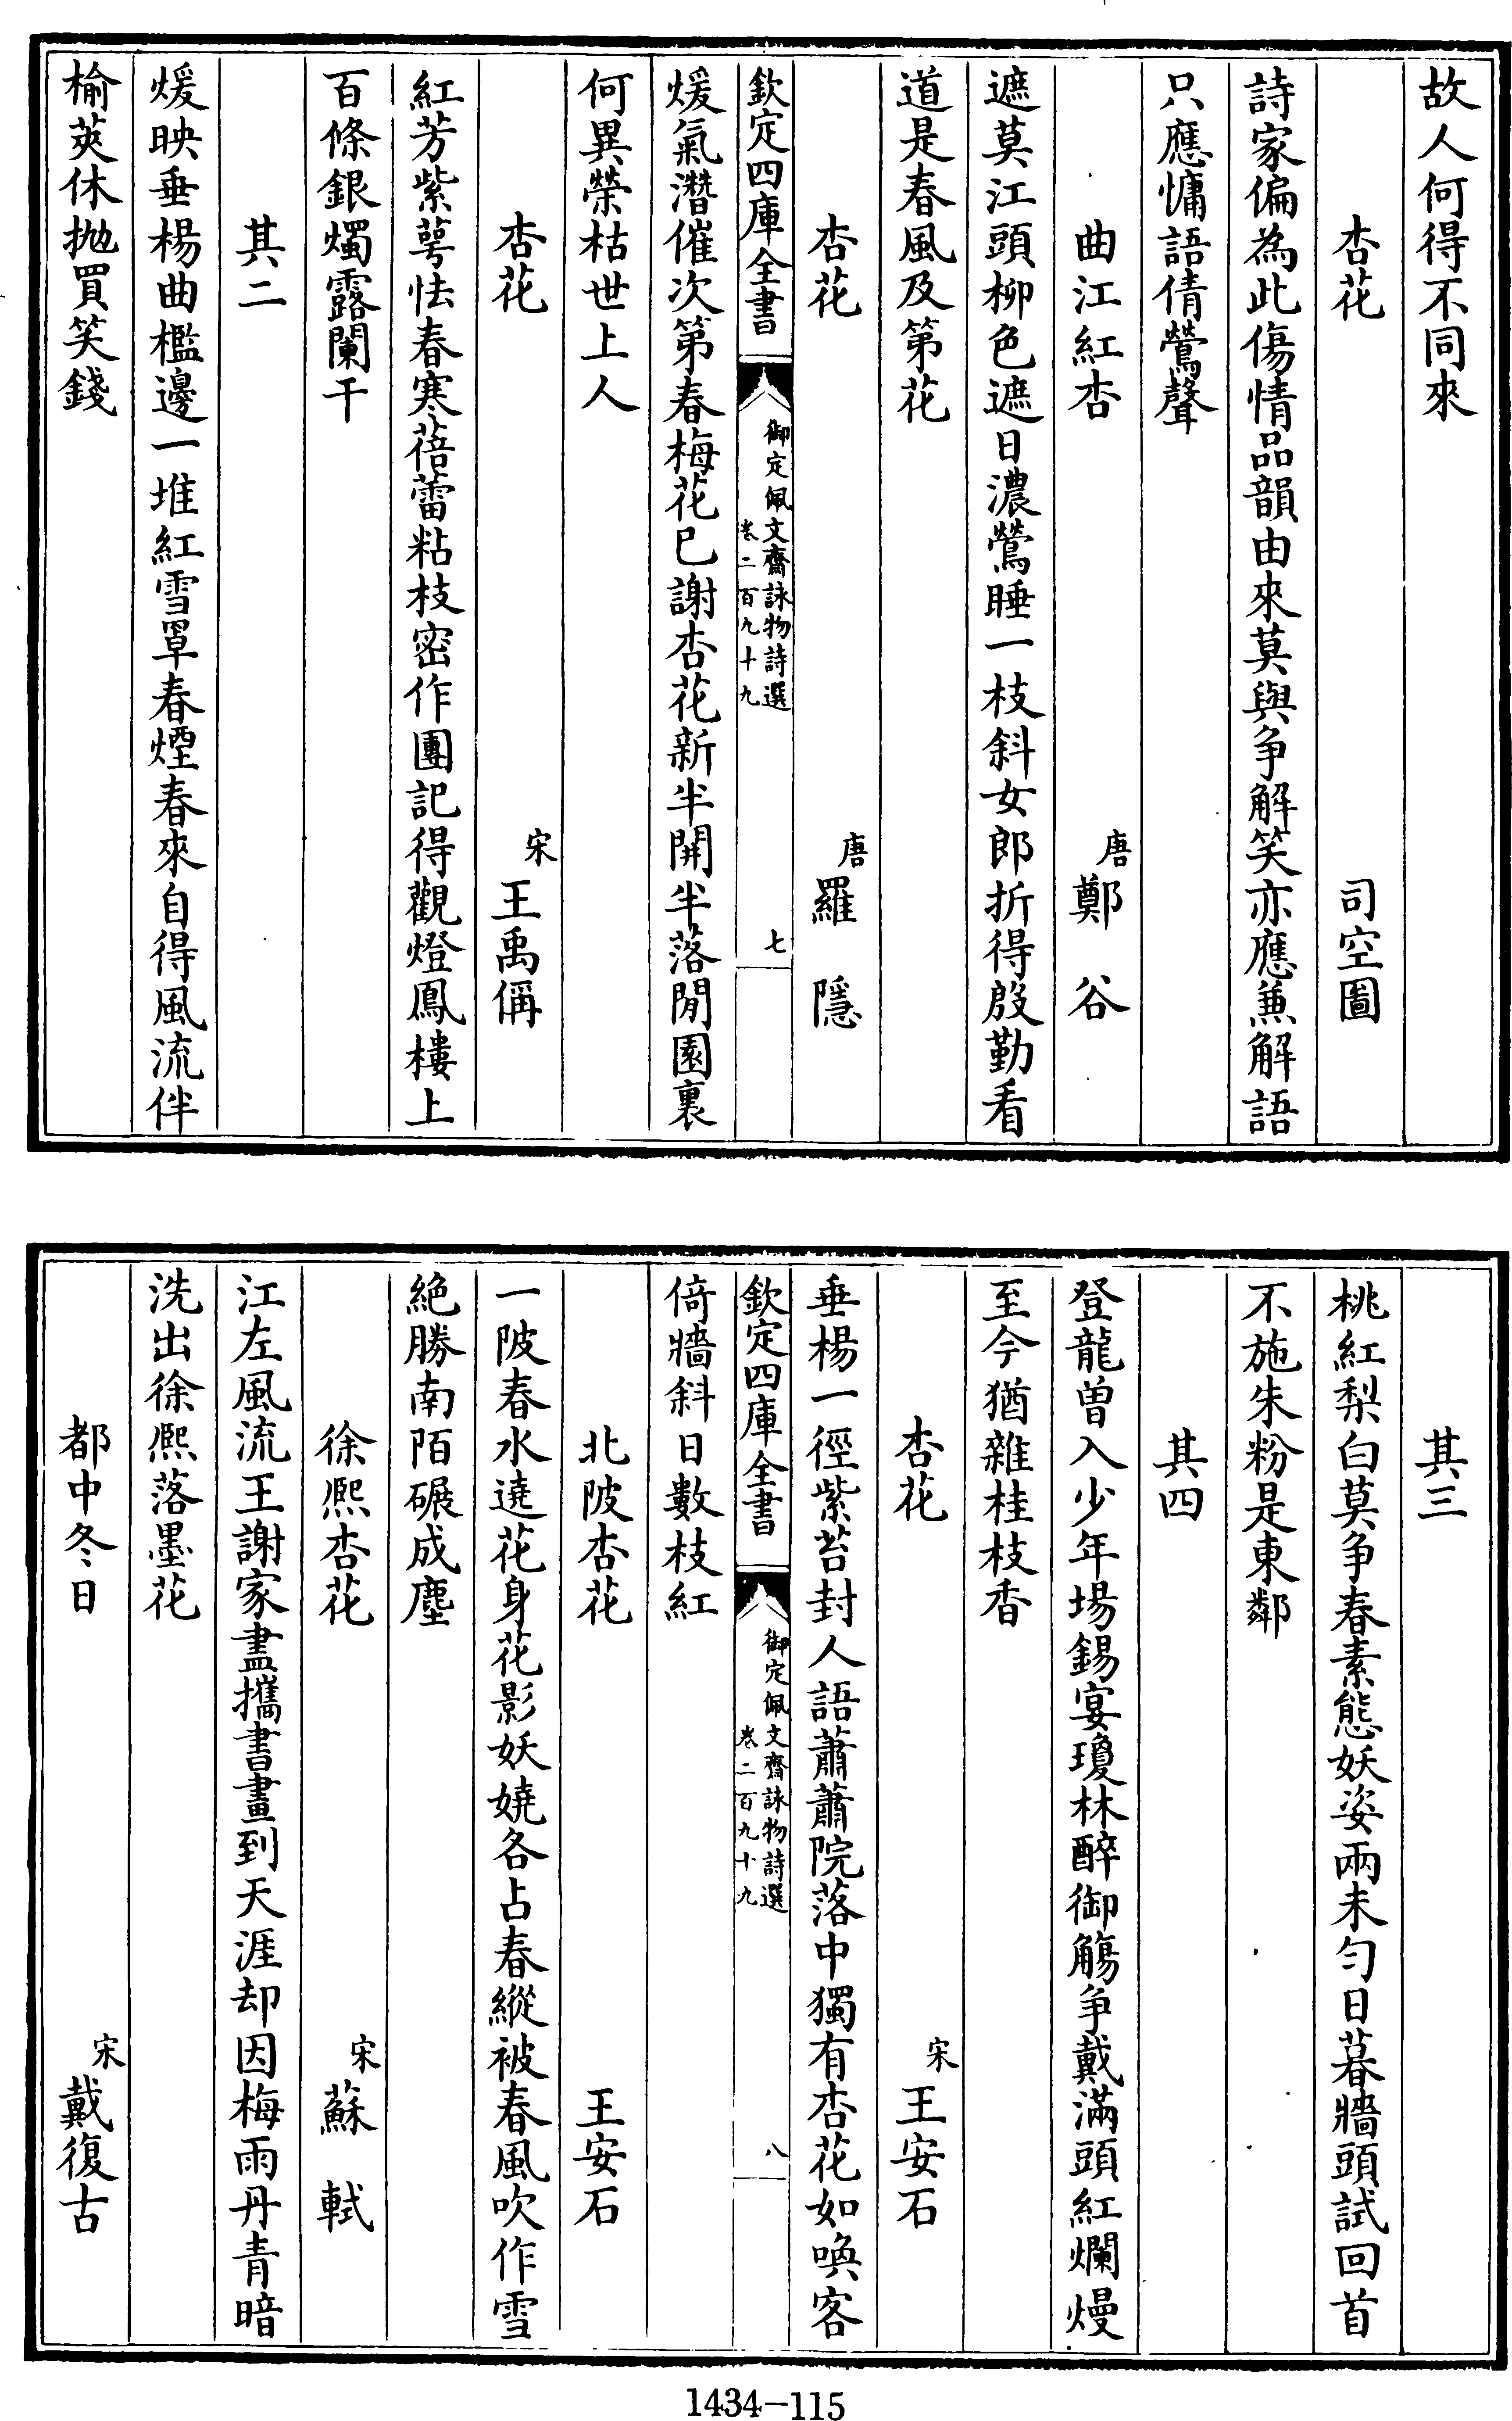 故人何得不同來
杏花　司空圖
詩家偏為此傷情品韻由來莫與争解笑亦應兼解語
只應慵語倩鶯聲
曲江紅杏　唐鄭谷
遮莫江頭柳色遮日濃鶯睡一枝斜女郎折得殷勤看
道是春風及第花
杏花　唐羅隱
欽定四庫全書
御定佩文齋詠物詩選
卷二百九十九
七
煖氣潛催次第春梅花已謝杏花新半開半落閒園裏
何異榮枯世上人
杏花　宋王禹偁
紅芳紫萼怯春寒蓓蕾粘枝密作團記得觀燈鳳樓上
百條銀燭露闌干
其二
煖映垂楊曲檻邊一堆紅雪罩春煙春來自得風流伴
榆莢休拋買笑錢
其三
桃紅梨白莫争春素態妖姿兩未勻日暮牆頭試回首
不施朱粉是東鄰
其四
登龍曾入少年場錫宴瓊林醉御觴争戴滿頭紅爛熳
至今猶雜桂枝香
杏花　宋王安石
垂楊一徑紫苔封人語蕭蕭院落中獨有杏花如喚客
欽定四庫全書
御定佩文齋詠物詩選
卷二百九十九
八
倚牆斜日數枝紅
北陂杏花　王安石
一陂春水遶花身花影妖嬈各占春縱被春風吹作雪
絕勝南陌碾成塵
徐熙杏花　宋蘇軾
江左風流王謝家盡攜書畫到天涯却因梅雨丹青暗
洗出徐熙落墨花
都中冬日　宋戴復古
1434-115